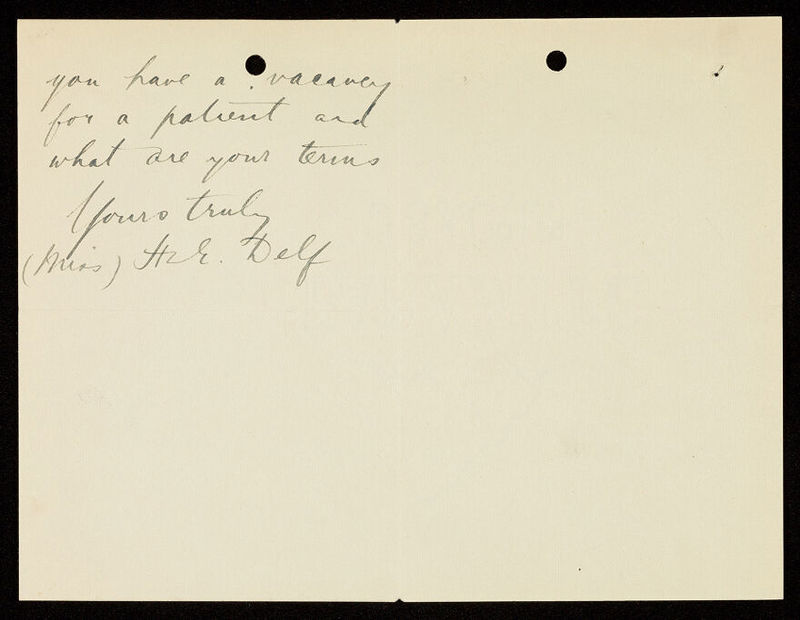 you have a vacancy
for a patient and
what are your terms
Yours truly
(Miss) H.E. Delf